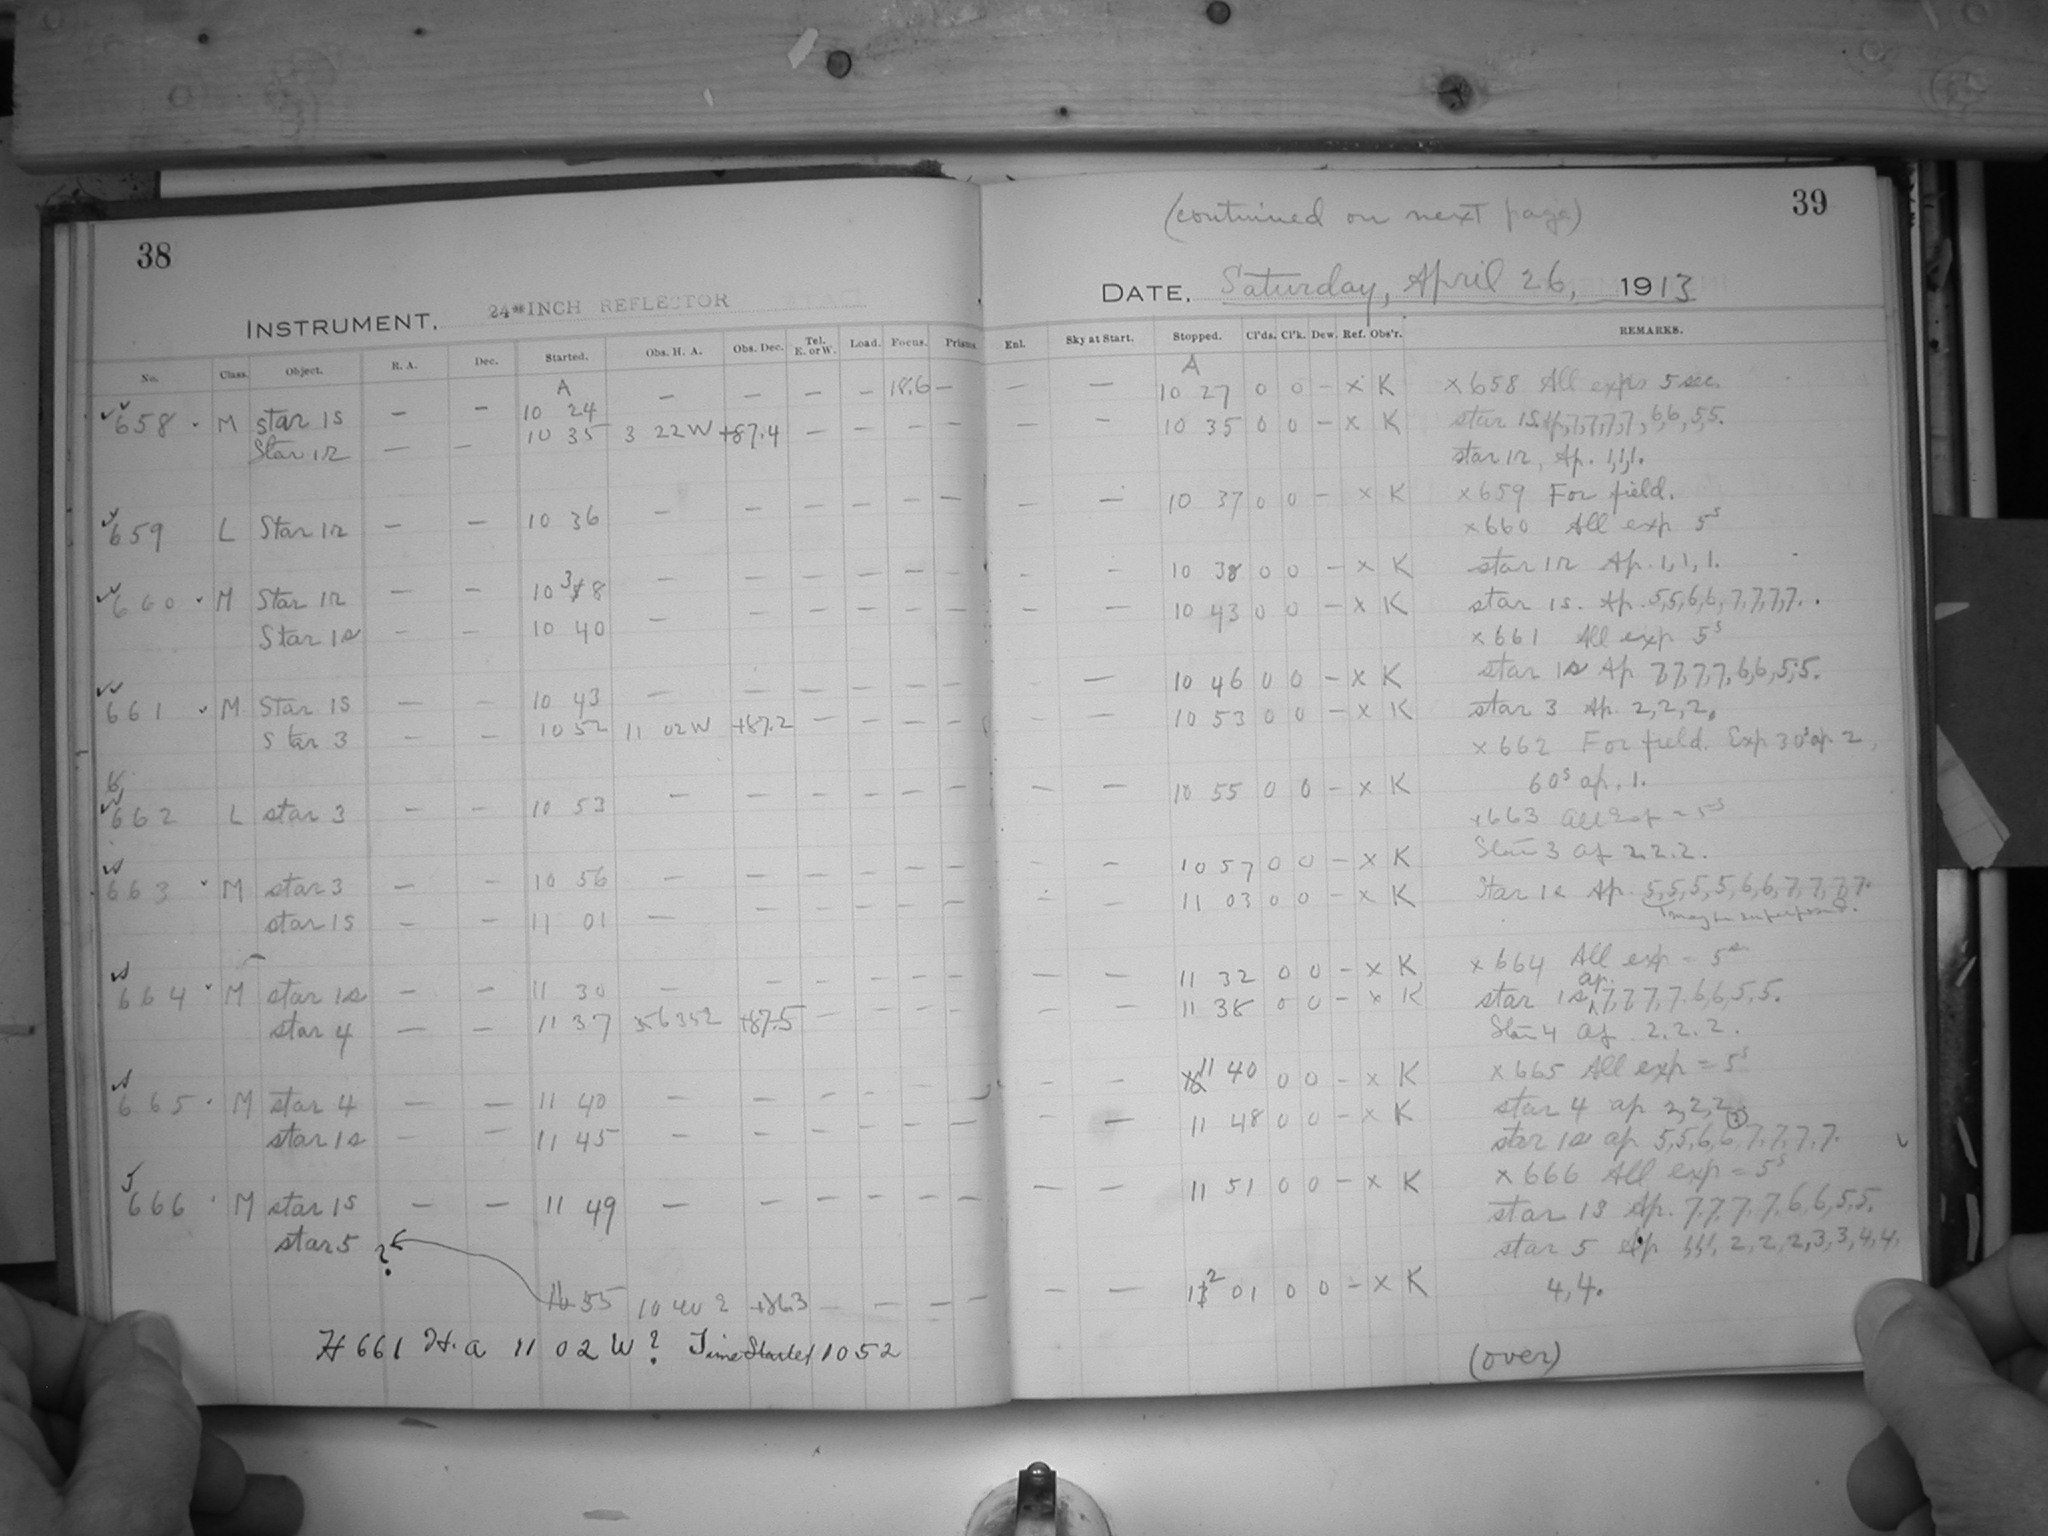 38
INSTRUMENT. 24-INCH REFLECTOR
No. Class. Object. R. A. Dec. Started. Obs. H. A. Obs. Dec. Tel. E. or W. Load. Focus. Prisms.
A
658 M star 1s — — 10 24 — — — — 18.6 —
Star 1r — — 10 35 3 22W +87.4 — — — —
659 L Star 1r — — 10 36 — — — — — —
660 M Star 1r — — 10 38 — — — — — —
Star 1s — — 10 40 — — — — — —
661 M Star 1s — — 10 43 — — — — — —
star 3 — — 10 52 11 02W +87.2 — — — —
662 L star 3 — — 10 53 — — — — — —
663 M star 3 — — 10 56 — — — — — —
star 1s — — 11 01 — — — — — —
664 M star 1s — — 11 30 — — — — — —
star 4 — — 11 37 +87.5 — — — —
665 M star 4 — — 11 40 — — — — — —
star 1s — — 11 45 — — — — — —
666 M star 1s — — 11 49 — — — — — —
star 5 ?
55 10 40 2 +86.3 — — — —
H 661 H.a 11 02 W? Time Started 10 52
39
(continued on next page)
DATE, Saturday, April 26, 1913
Enl. Sky at Start. Stopped. Cl'ds. Cl'k. Dew. Ref. Obs'r. REMARKS.
A
— — 10 27 0 0 – x K x 658 All exps 5 sec.
— 10 35 0 0 – x K star 1s. Ap. 7,7,7,7, 6,6, 5,5.
star 1r, Ap. 1,1,1.
— — 10 37 0 0 – x K x 659 For field.
x 660 All exp 5s
- - 10 38 0 0 – x K star 1r Ap. 1, 1, 1.
— — 10 43 0 0 – x K star 1s. Ap. 5,5,6,6, 7,7,7,7.
x 661 All exp 5s
— 10 46 0 0 – x K star 1s Ap 7,7,7,7, 6,6, 5,5.
— — 10 53 0 0 – x K star 3 Ap. 2, 2, 2.
x 662 For field. Exp 30s ap. 2,
— — 10 55 0 0 – x K 60s ap. 1.
x 663 All Exp = 5s
— 10 57 0 0 – x K Star 3 ap 2.2.2.
— — 11 03 0 0 – x K Star 1s Ap. 5,5,5,5,6,6,7,7,7,7.
may be superposed.
— — 11 32 0 0 – x K x 664 All exp = 5s.
— — 11 38 0 0 – x K star 1s, ap. 7,7,7,7. 6,6,5,5.
Star 4 ap. 2.2.2.
— — 11 40 0 0 – x K x 665 All exp = 5s
star 4 ap 2, 2, 2
- — 11 48 0 0 – x K star 1s ap 5,5,6,6, 7,7,7,7.
x 666 All exp = 5s
— — 11 51 0 0 – x K star 1s Ap. 7,7,7,7, 6,6,5,5.
star 5 Ap 1,1,1, 2, 2, 2, 3, 3, 4, 4.
— — 12 01 0 0 – x K 4, 4.
(over)